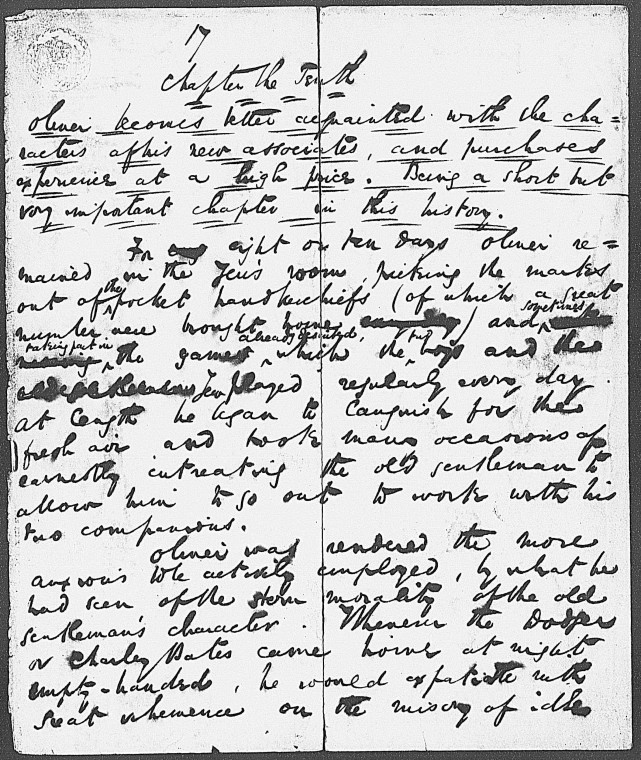 17
Chapter the Tenth
Oliver becomes better acquainted with the cha=
racters of his new associates, and purchases
experience at a high price. Being a short but
very important chapter in this history.
For eight or ten days Oliver re=
mained in the Jew's room, picking the marks
out of the pocket handkerchiefs (of which a great
number were brought home) and sometimes
taking part in the games already described, which the two boys and the
Jew played regularly every day.
At length he began to languish for the
fresh air and took many occasions of
earnestly entreating the old gentleman to
allow him to go out to work with his
two companions.
Oliver was rendered the more
anxious to be actively employed, by what he
had seen of the stern morality of the old
gentleman's character. Whenever the Dodger
or Charley Bates came home at night
empty-handed, he would expatiate with
great vehemence on the misery of idle